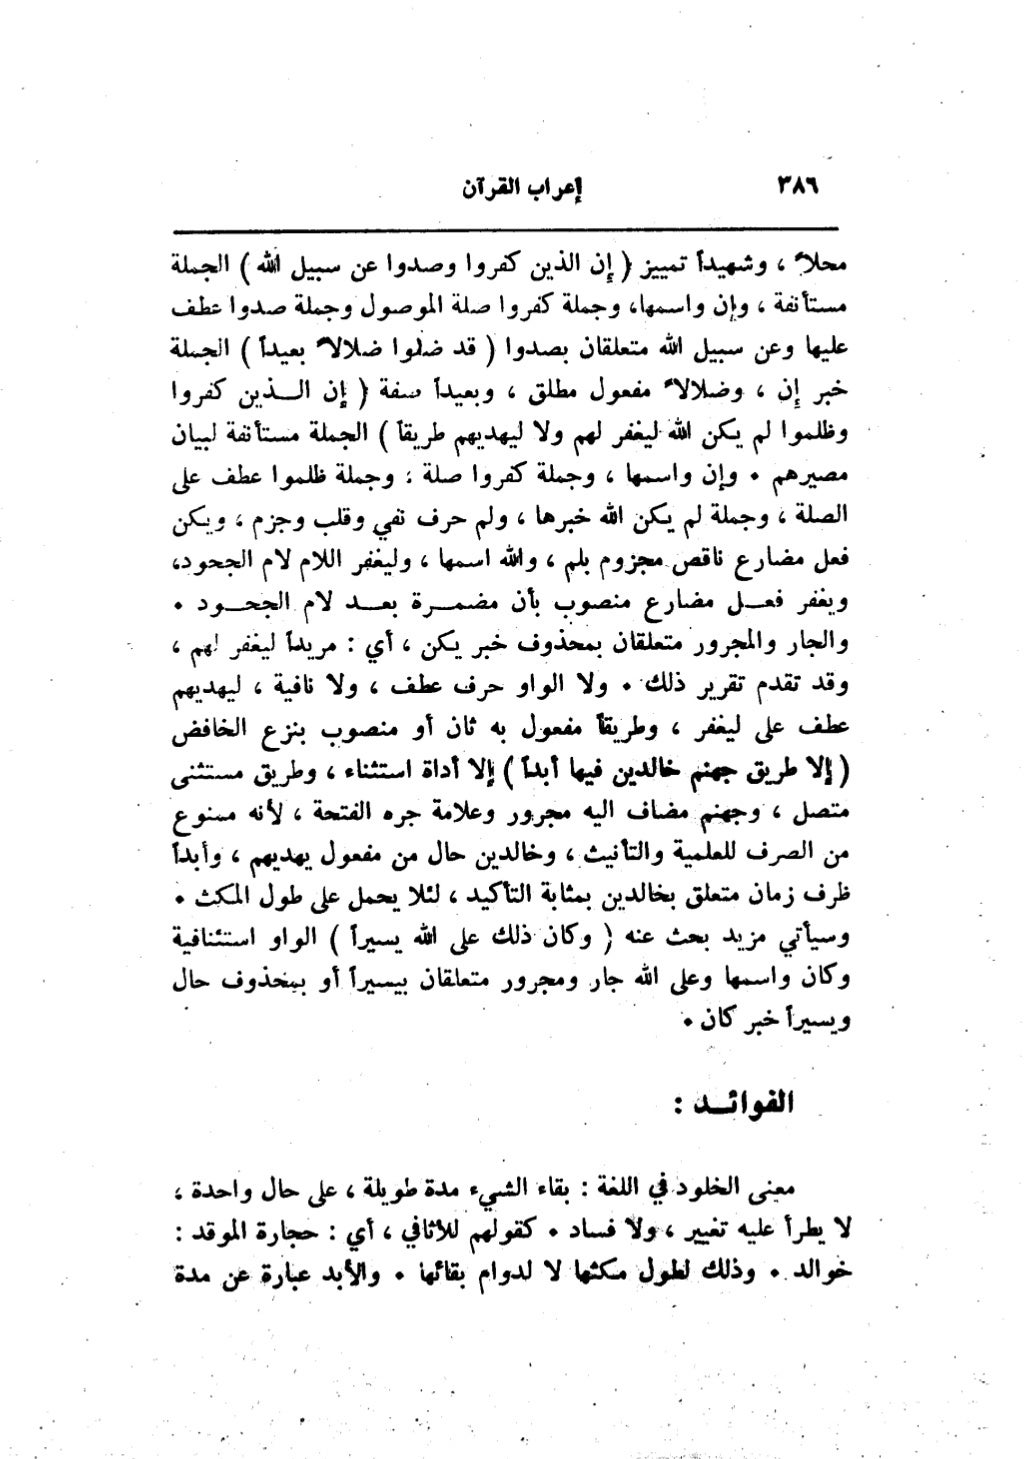 ٣٨٦ إعراب القرآن
محلاً ، وشهيداً تمييز ( إن الذين كفروا وصدوا عن سبيل الله ) الجملة
مستأنفة ، وإن واسمها، وجملة كفروا صلة الموصول وجملة صدوا عطف
عليها وعن سبيل الله متعلقان بصدوا ( قد ضلوا ضلالاً بعيداً ) الجملة
خبر إن ، وضلالاً مفعول مطلق ، وبعيداً صفة ( إن الـذين كفروا
وظلموا لم يكن الله ليغفر لهم ولا ليهديهم طريقاً ) الجملة مستأنفة لبيان
مصيرهم . وإن واسمها ، وجملة كفروا صلة ، وجملة ظلموا عطف على
الصلة ، وجملة لم يكن الله خبرها ، ولم حرف نفي وقلب وجزم ، ويكن
فعل مضارع ناقص مجزوم بلم ، والله اسمها ، وليغفر اللام لام الجحود،
ويغفر فعـل مضارع منصوب بأن مضمـرة بعـد لام الجحـود .
والجار والمجرور متعلقان بمحذوف خبر يكن ، أي : مريداً ليغفر لهم ،
وقد تقدم تقرير ذلك . ولا الواو حرف عطف ، ولا نافية ، ليهديهم
عطف على ليغفر ، وطريقاً مفعول به ثان أو منصوب بنزع الخافض
( إلا طريق جهنم خالدين فيها أبداً ) إلا أداة استثناء ، وطريق مستثنى
متصل ، وجهنم مضاف اليه مجرور وعلامة جره الفتحة ، لأنه ممنوع
من الصرف للعلمية والتأنيث ، وخالدين حال من مفعول يهديهم ، وأبداً
ظرف زمان متعلق بخالدين بمثابة التأكيد ، لئلا يحمل على طول المكث .
وسيأتي مزيد بحث عنه ( وكان ذلك على الله يسيراً ) الواو استئنافية
وكان واسمها وعلى الله جار ومجرور متعلقان بيسيراً أو بمحذوف حال
ويسيراً خبر كان .
الفوائـد :
معنى الخلود في اللغة : بقاء الشيء مدة طويلة ، على حال واحدة ،
لا يطرأ عليه تغيير ، ولا فساد . كقولهم للأثافي ، أي : حجارة الموقد :
خوالد . وذلك لطول مكثها لا لدوام بقائها . والأبد عبارة عن مدة